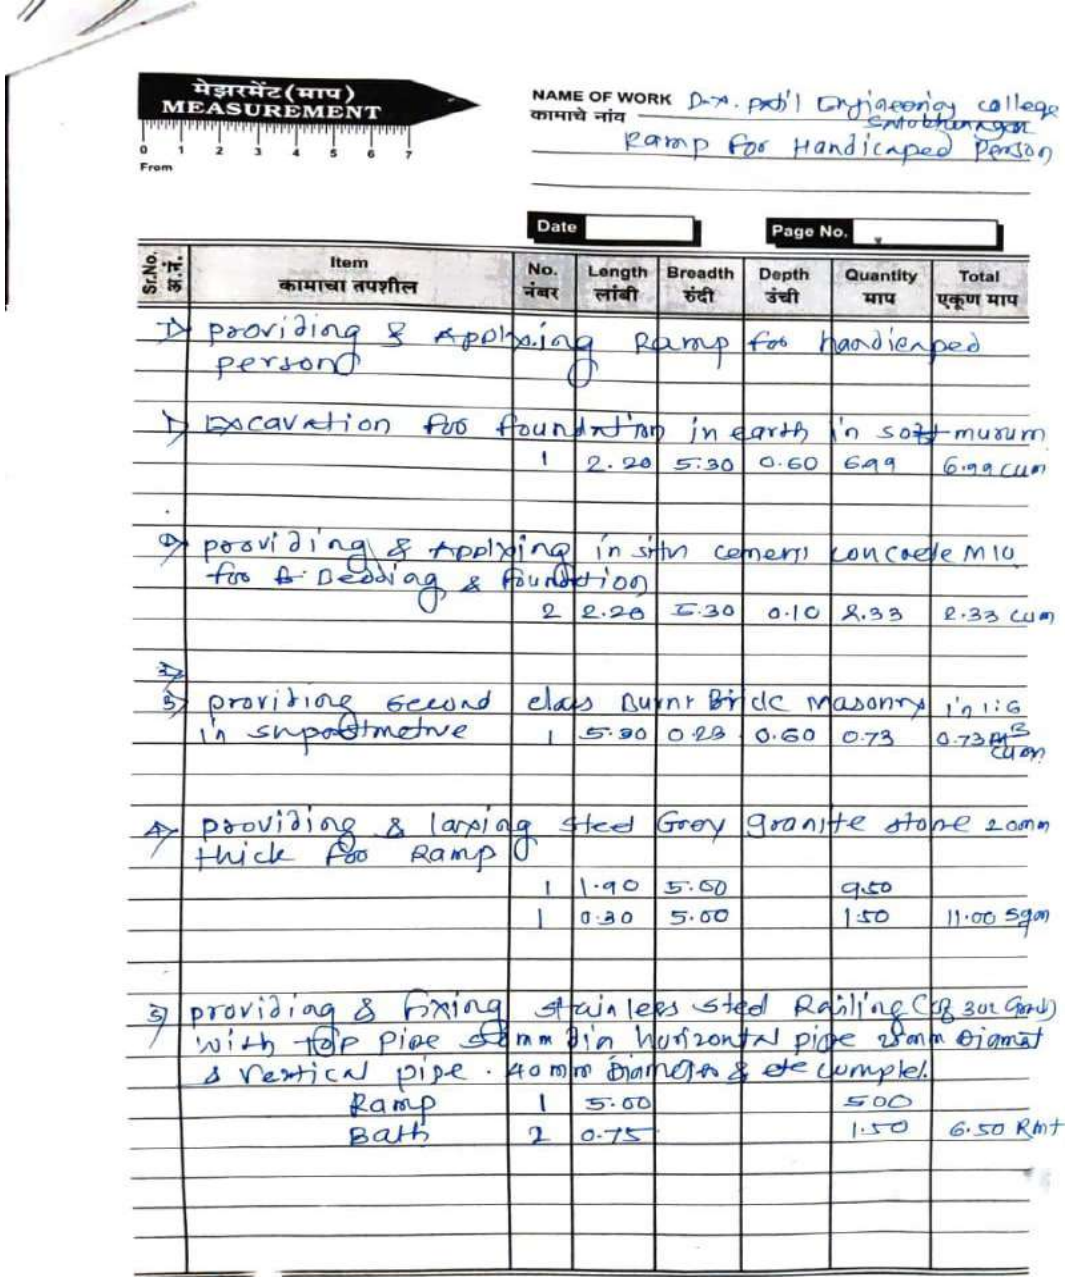 मेझरमेंट(माप)
MEASUREMENT
0 1 2 3 4 5 6 7
From
NAME OF WORK D.Y. patil Engineering college
कामाचे नांव
Ramp for Handicaped Person
Date Page No.
Sr.No. Item No. Length Breadth Depth Quantity Total
क्र.नं. कामाचा तपशील नंबर लांबी रुंदी उंची माप एकूण माप
I> providing & Applying Ramp for handicaped
person
1> Excavation for foundation in earth in soft murum
1 2.20 5.30 0.60 6.99 6.99 cum
2> providing & Applying in situ cement concrete M10
for Bedding & foundation
2 2.20 5.30 0.10 2.33 2.33 cum
3> providing second class Burnt Brick Masonry in 1:6
in
1 5.30 0.23 0.60 0.73 0.73 cum
4> providing & laying steel Grey granite stone 20mm
thick for Ramp
1 1.90 5.00 9.50
1 0.30 5.00 1.50 11.00 Sqm
5> providing & fixing stainless steel Railing
with top pipe 50mm dia horizontal pipe 25mm Diamet
& vertical pipe. 40 mm Diameter & etc complet.
Ramp 1 5.00 500
Bath 2 0.75 1.50 6.50 Rmt